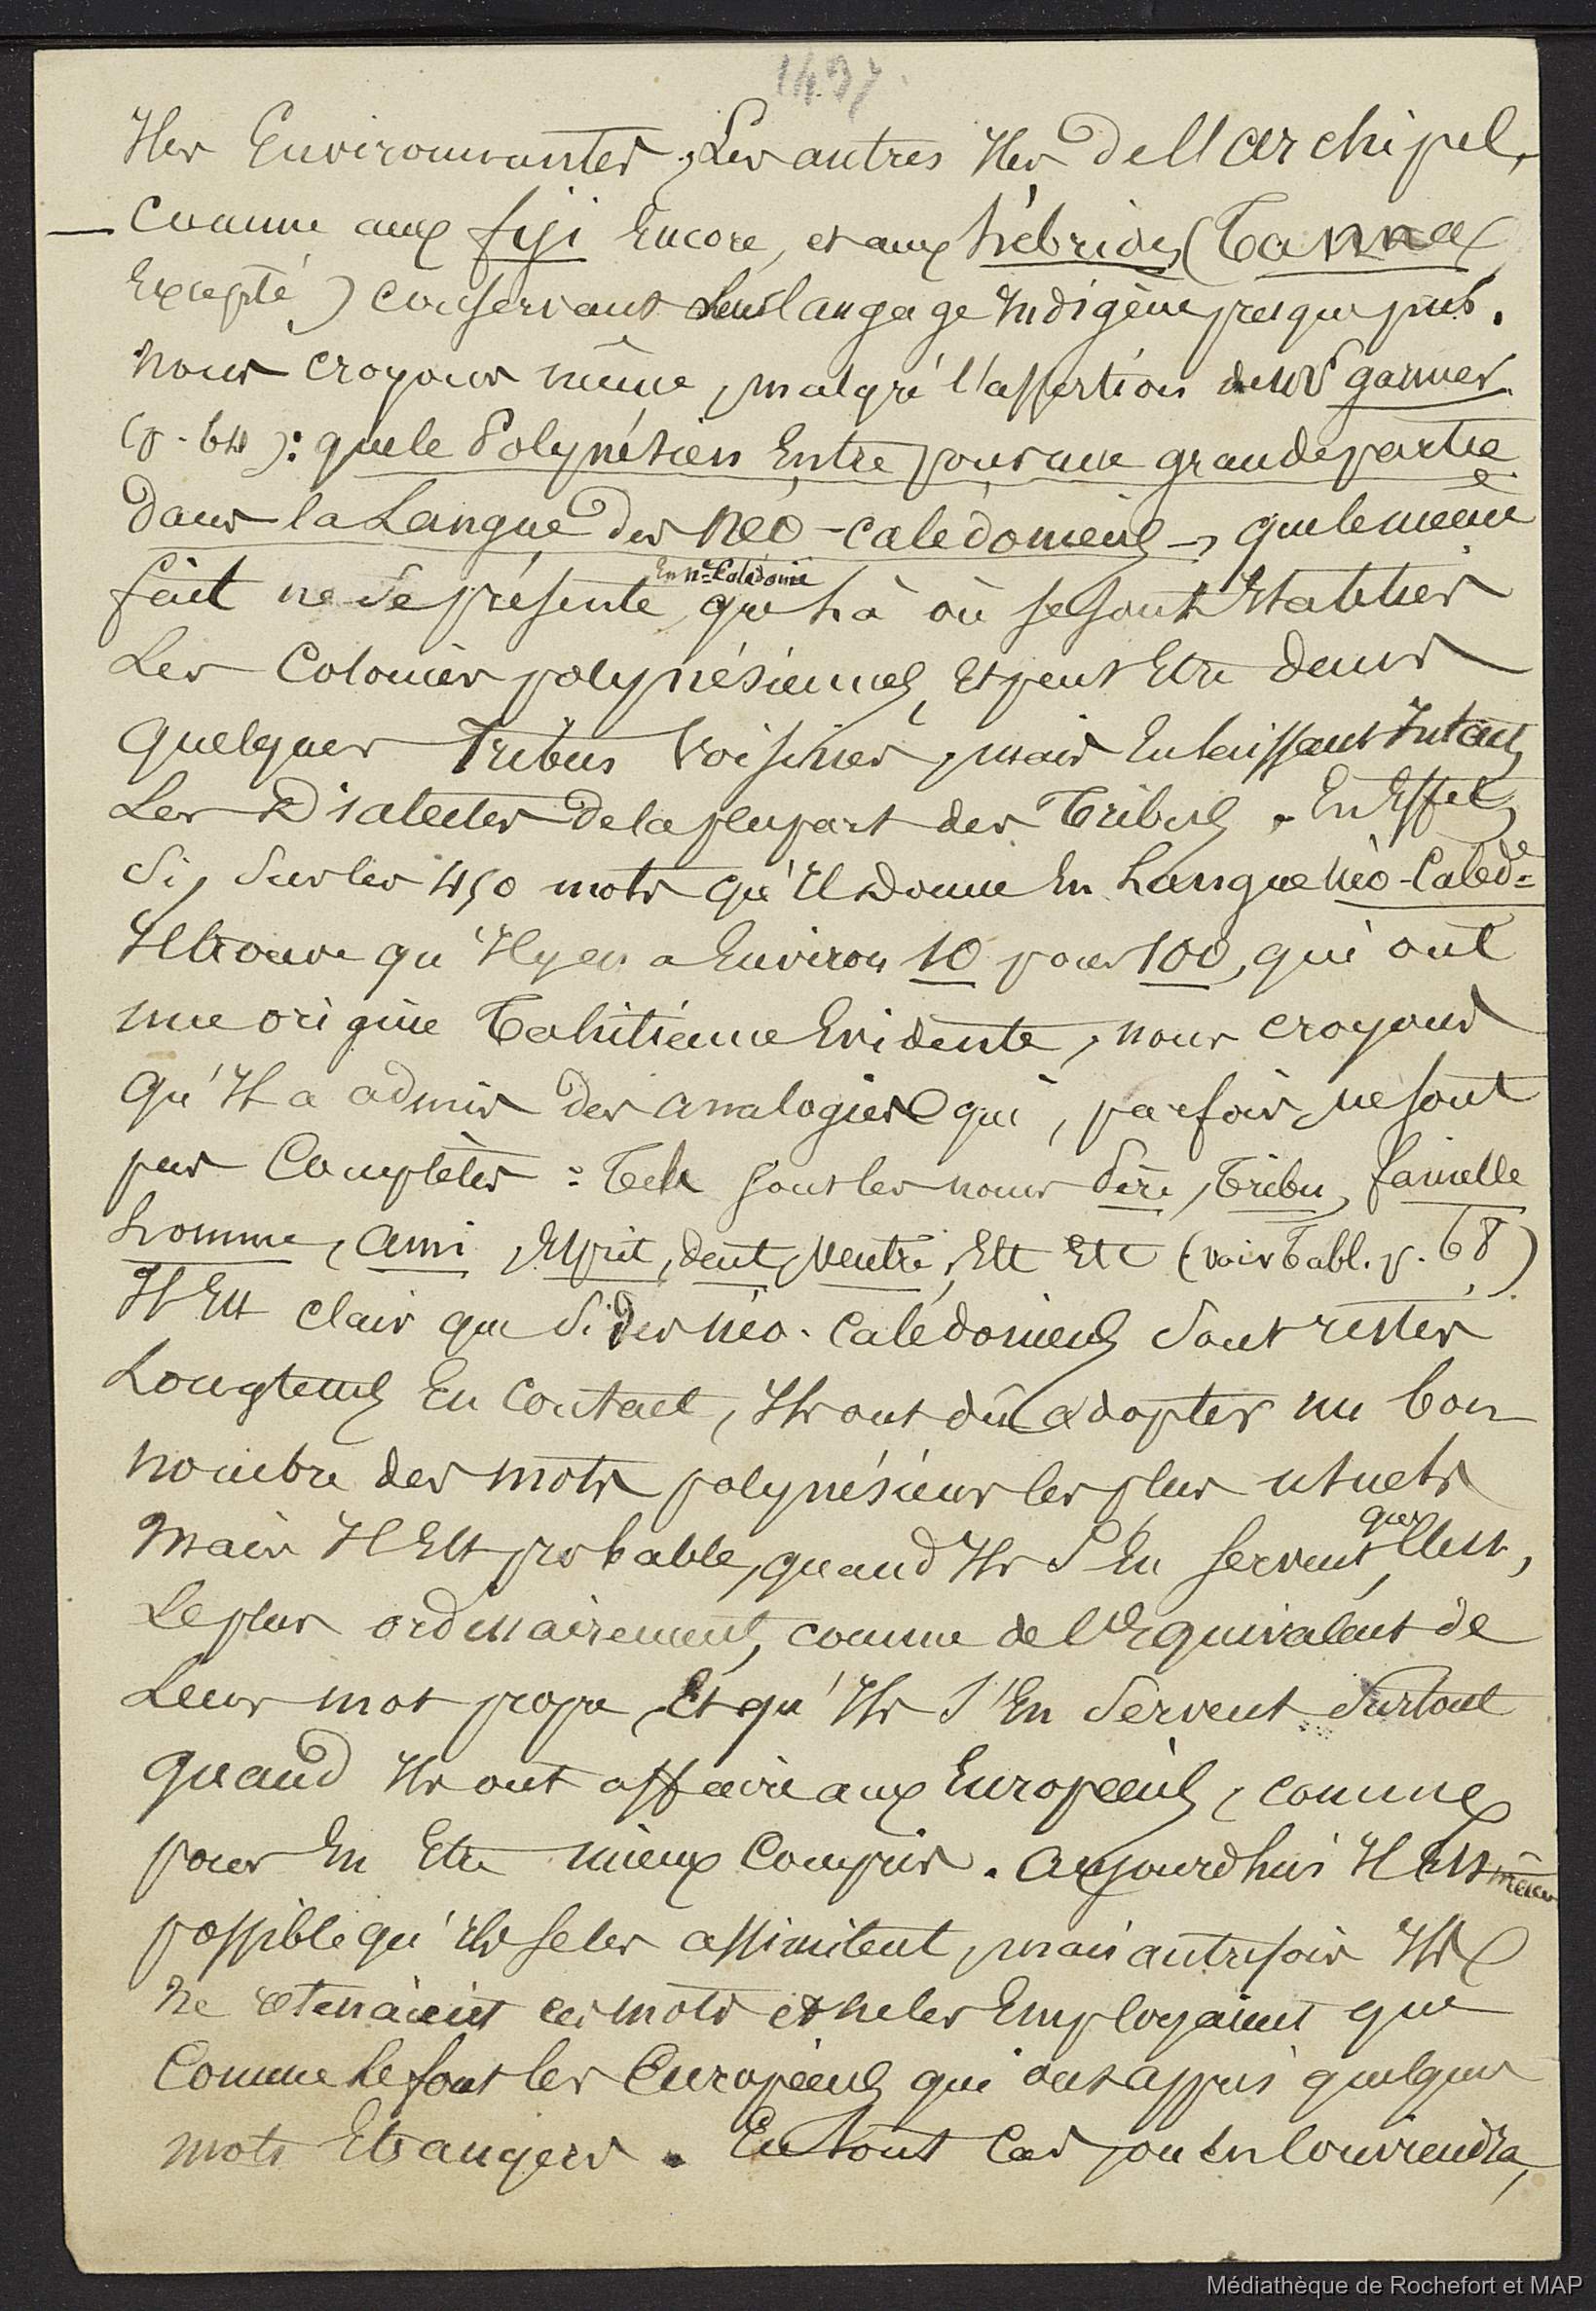 1497
Iles Environnantes, Les autres Iles de l'archipel,
— Comme aux fiji Encore, et aux hébrides (Tanna
Excepté) conservant leur langage Indigène presque pur.
nous croyons même, malgré l'assertion de Mr garnier
(p. 64): que le Polynésien Entre pour une grande partie
Dans la Langue des Néo-calédoniens, que le même
fait ne se présente, En Nlle Calédonie que là où se sont Etablies
Les Colonies polynésiennes, Et peut Etre dans
quelques Tribus Voisines, mais En laissant Intacts
Les Dialectes de la plupart des Tribus. En Effet,
Si, Sur les 450 mots qu'Il Donne En Langue Néo-Caléd.
Il trouve qu'Il y en a Environ 10 pour 100, qui ont
une origine Tahitienne Evidente, nous croyons
qu'Il a admis des analogies qui, parfois, ne sont
pas Complètes: Tels sont les noms Père, Tribu, famille
homme, ami, Esprit, dent, Ventre, Etc Etc (voir Tabl. p. 68)
Il Est clair que Si des néo-calédoniens Sont restés
Longtems En Contact, Ils ont dû adopter un bon
nombre des mots polynésiens les plus usuels
Mais Il Est probable, quand Ils S'En servent, que c'est,
Le plus ordinairement, comme de l'Equivalent de
Leur mot propre, Et qu'Ils S'En Servent Surtout
quand Ils ont affaire aux Européens, comme
pour En Etre mieux Compris. aujourdhui Il Est même
possible qu'Ils se les assimilent, mais autrefois Ils
ne retenaient ces mots et ne les Employaient que
Comme le font les Européens qui ont appris quelques
mots Etrangers. En tout Cas, on En Conviendra,
Médiathèque de Rochefort et MAP